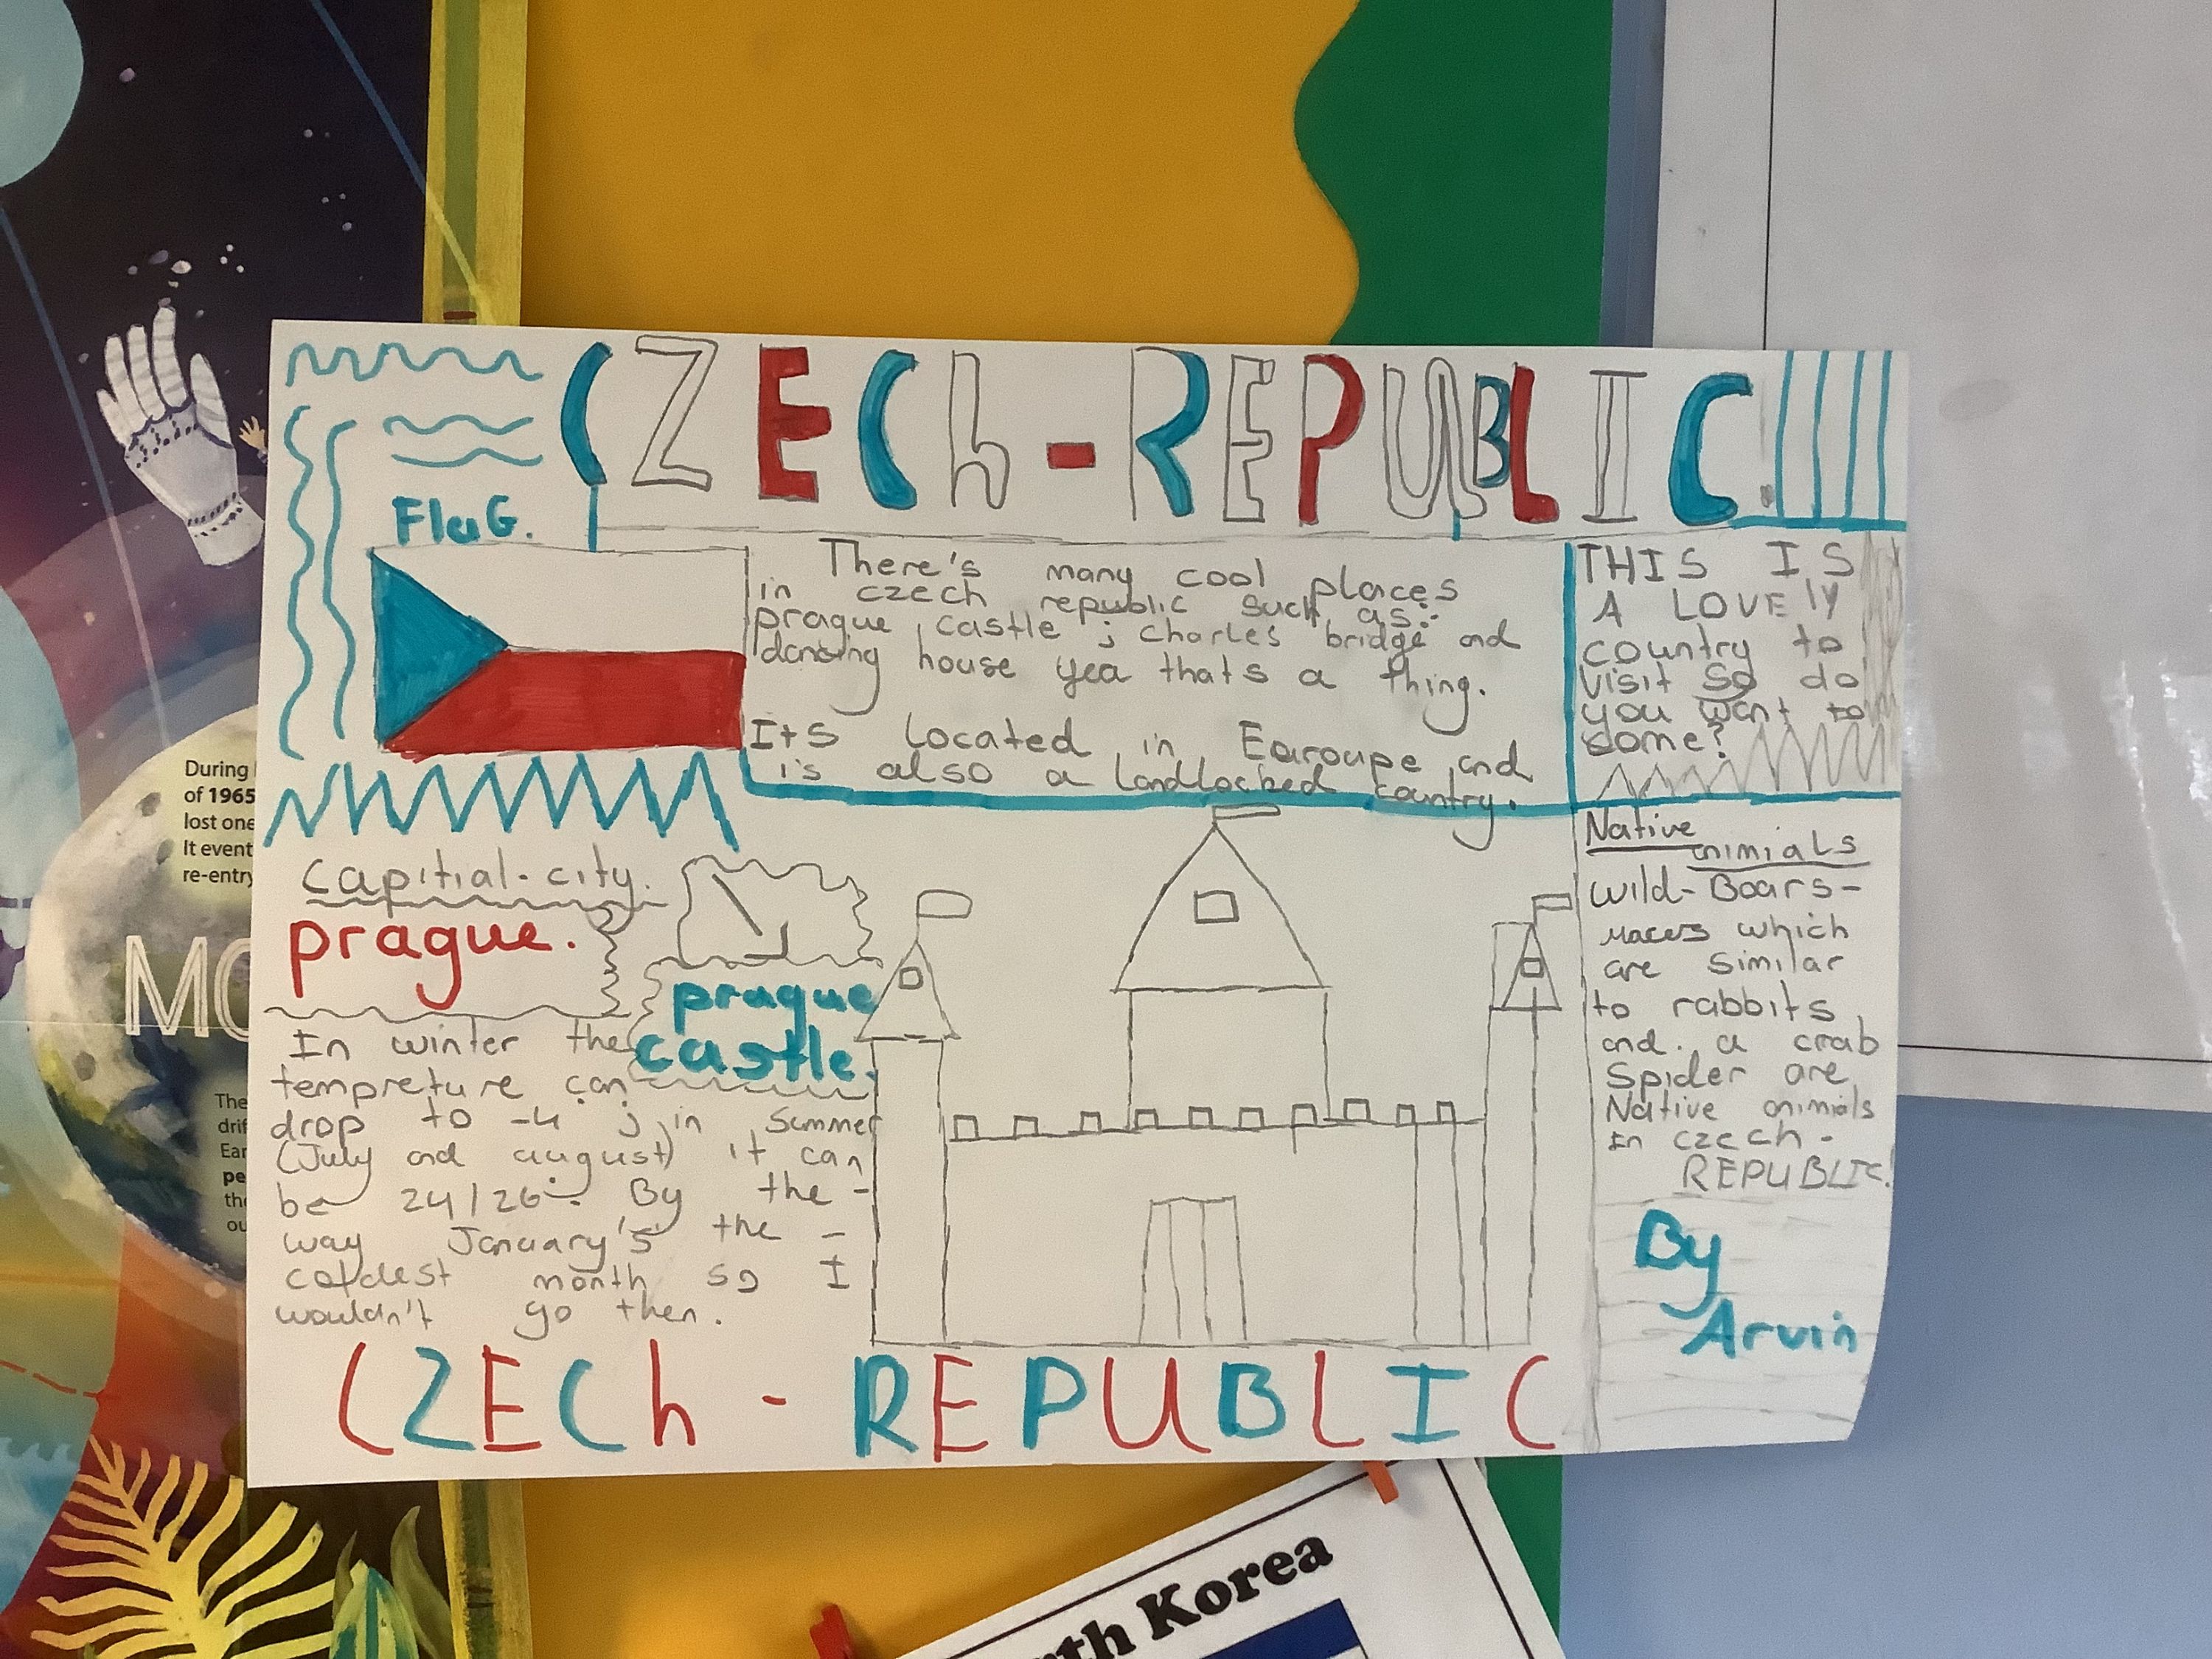 CZECh-REPUBLIC
FlaG.
There's many cool places
in czech republic such as:
prague castle ; charles bridge and
dancing house yea thats a thing.
Its located in Earoupe and
is also a landlocked country.
THIS IS
A LOVElY
country to
visit so do
you want to
come?
capitial-city.
prague.
prague
castle.
In winter the
tempreture can
drop to -4 ; in summer
(July and august) it can
be 24/26. By the -
way January's the -
coldest month so I
wouldn't go then.
Native
animials
wild-Boars-
which
are similar
to rabbits
and a crab
Spider are
Native animials
In czech-
REPUBLIC!
By
Arvin
CZECh-REPUBLIC
During
of 1965
lost one
It event
re-entry
MO
The
drif
Ear
pe
the
ou
uth Korea